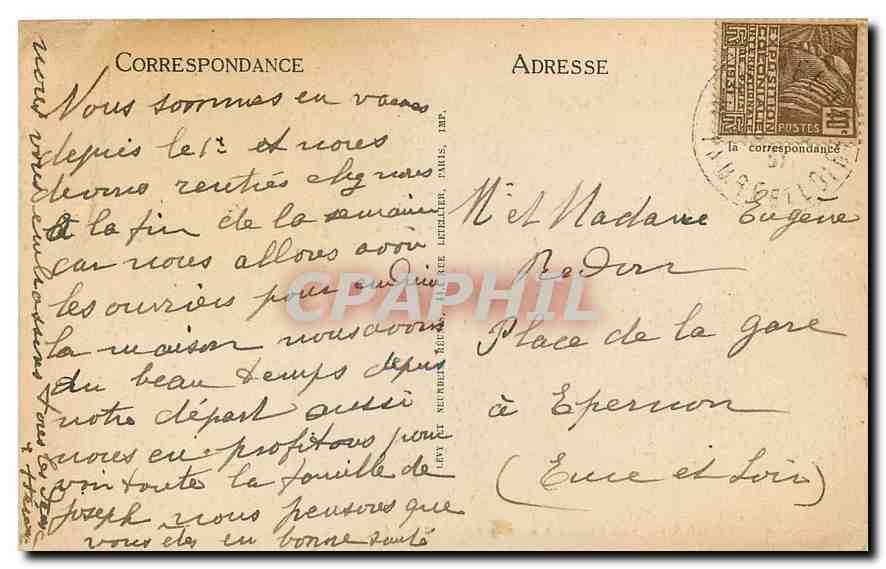 CORRESPONDANCE
Nous sommes en vacances
depuis le 1er et nous
devons rentrés chez nous
à la fin de la semaine
car nous allons avoir
les ouvriers pour enduire
la maison nous avons
du beau temps depuis
notre départ aussi
nous en profitons pour
voir toute la famille de
Joseph nous pensons que
vous êtes en bonne santé
nous vous embrassons tous les deux
LEVY ET NEURDEIN RÉUNIS, 44, RUE LETELLIER, PARIS, IMP.
ADRESSE
EXPOSITION
COLONIALE
INTERNATIONALE
PARIS 1931
POSTES
40c
la correspondance
31
Mr et Madame Eugène
Redon
Place de la gare
à Epernon
(Eure et Loir)
CPAPHIL